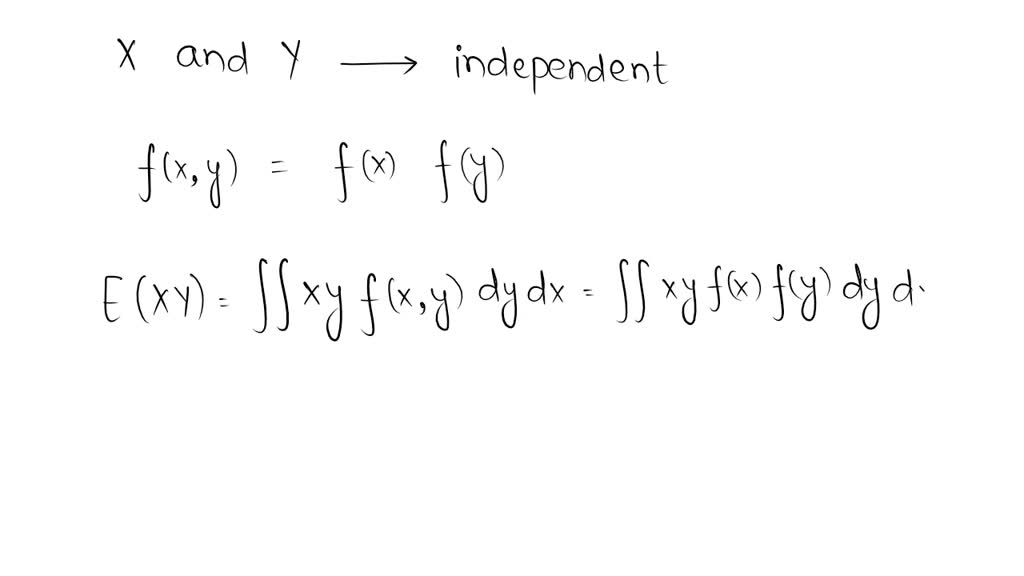 X and Y → independent
f(x,y) = f(x) f(y)
E(XY) = ∬ xy f(x,y) dy dx = ∬ xy f(x) f(y) dy d